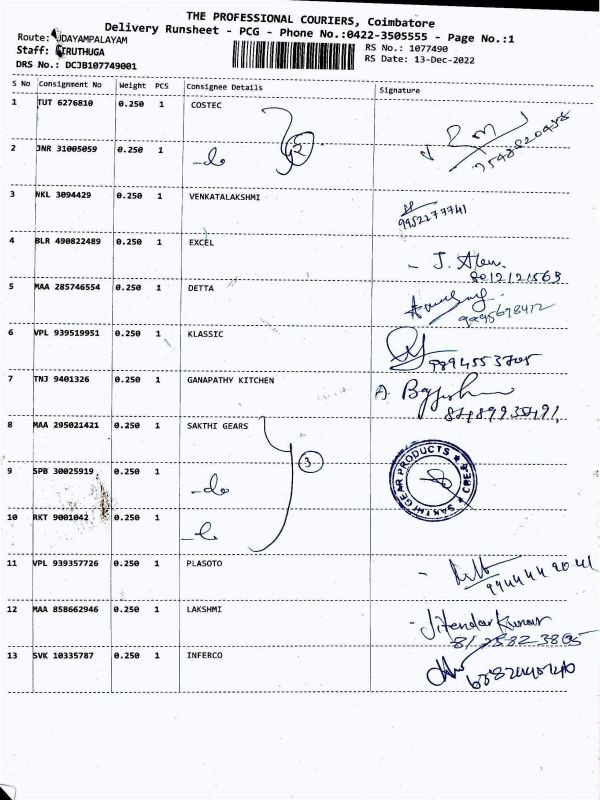 THE PROFESSIONAL COURIERS, Coimbatore
Delivery Runsheet - PCG - Phone No.:0422-3505555 - Page No.:1
Route: UDAYAMPALAYAM
RS No.: 1077490
Staff: KIRUTHUGA
RS Date: 13-Dec-2022
DRS No.: DCJB107749001
S No Consignment No Weight PCS Consignee Details Signature
1 TUT 6276810 0.250 1 COSTEC
2 JNR 31005059 0.250 1 -do 2
3 NKL 3094429 0.250 1 VENKATALAKSHMI
9952277741
4 BLR 490822489 0.250 1 EXCEL
8012121563
5 MAA 285746554 0.250 1 DETTA
6 VPL 939519951 0.250 1 KLASSIC
7 TNJ 9401326 0.250 1 GANAPATHY KITCHEN
8 MAA 295021421 0.250 1 SAKTHI GEARS
3
SAKTHI GEAR PRODUCTS ★ CBE ★
9 SPB 30025919 0.250 1 -do
10 RKT 9001042 0.250 1
11 VPL 939357726 0.250 1 PLASOTO
12 MAA 858662946 0.250 1 LAKSHMI
Jitendar Kumar
13 SVK 10335787 0.250 1 INFERCO